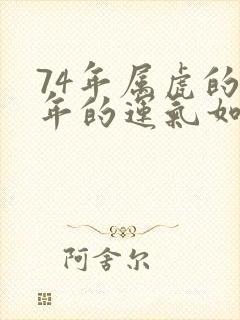 74年属虎的
年的运氣如
阿舍尔